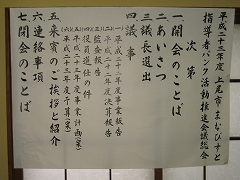 平成二十三年度 上尾市まなびすと
指導者バンク活動推進会議総会
次第
一.開会のことば
二.あいさつ
三.議長選出
四.議事
一.平成二十二年度事業報告
二.平成二十二年度決算報告
三.監査報告
四.役員選任の件
五.平成二十三年度事業計画(案)
六.平成二十三年度予算(案)
五.来賓のご挨拶と紹介
六.連絡事項
七.閉会のことば